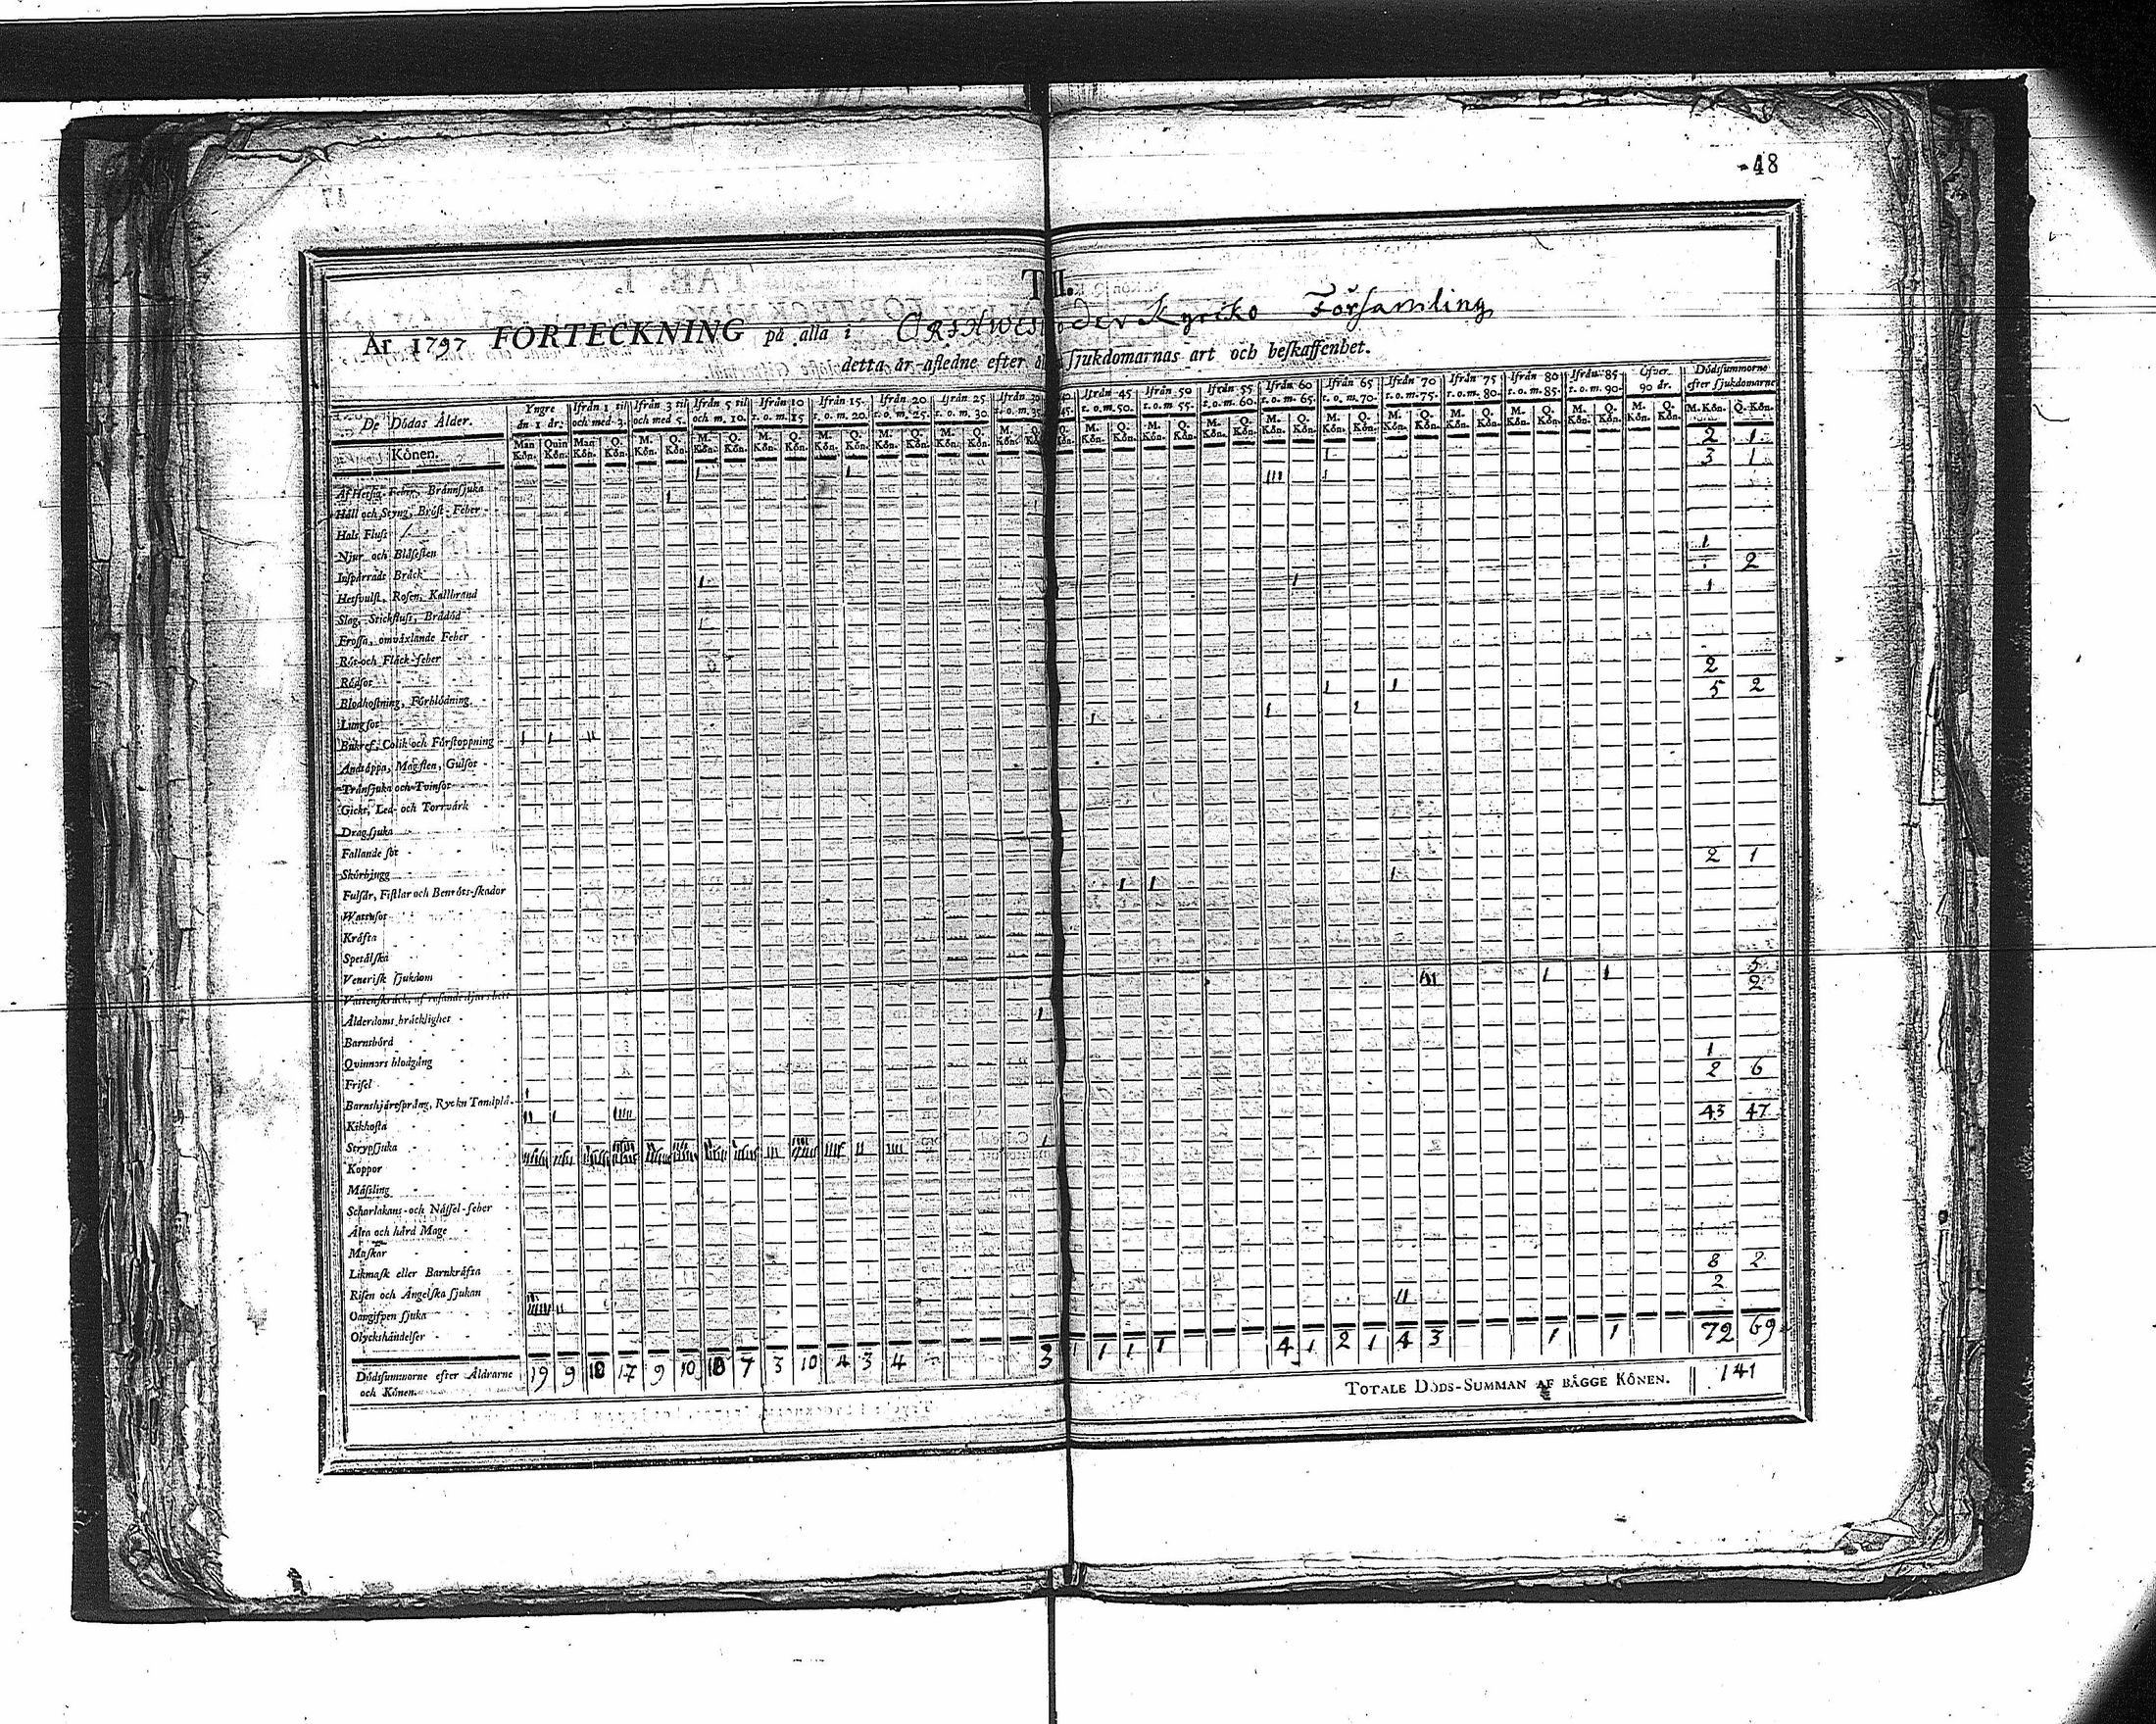 48
T II.
År 1797 FÖRTECKNING på alla i Kyrko Församling
detta år afledne efter sjukdomarnas art och beskaffenhet.
De Dödas Ålder. Yngre än 1 år. Ifrån 1 til och med 3. Ifrån 3 til och med 5. Ifrån 5 til och m. 10. Ifrån 10 t. o. m. 15 Ifrån 15 t. o. m. 20. Ifrån 20 t. o. m. 25. Ifrån 25 t. o. m. 30. Ifrån 30 t. o. m. 35. 45. Ifrån 45 t. o. m. 50. Ifrån 50 t. o. m. 55. Ifrån 55 t. o. m. 60. Ifrån 60 t. o. m. 65. Ifrån 65 t. o. m. 70. Ifrån 70 t. o. m. 75. Ifrån 75 t. o. m. 80. Ifrån 80 t. o. m. 85. Ifrån 85 t. o. m. 90. Öfver 90 år. Dödssummorne efter sjukdomarne
Könen. Man Kön. Quin Kön. Man Kön. Q. Kön. M. Kön. Q. Kön. M. Kön. Q. Kön. M. Kön. Q. Kön. M. Kön. Q. Kön. M. Kön. Q. Kön. M. Kön. Q. Kön. M. Kön. M. Kön. Q. Kön. M. Kön. Q. Kön. M. Kön. Q. Kön. M. Kön. Q. Kön. M. Kön. Q. Kön. M. Kön. Q. Kön. M. Kön. Q. Kön. M. Kön. Q. Kön. M. Kön. Q. Kön. M. Kön. Q. Kön. M. Kön. Q. Kön.
Af Hetsig Feber, Brännsjuka 2 1
Håll och Styng, Bröst-Feber 3 1
Hals Fluss
Njur och Blåsesten
Inspärradt Bråck 1
Hetsvulst, Rosen, Kallbrand 2
Slag, Stickfluss, Brådöd 1
Frossa, omväxlande Feber
Röt- och Fläck-feber
Rödsot
Blodhostning, Förblödning 2
Lungsot 5 2
Bukref, Colik och Förstoppning
Andtäppa, Magsten, Gulsot
Tränsjuka och Tvinsot
Gickt, Led- och Torrvärk
Dragsjuka
Fallande sot
Skörbjugg
Fulsår, Fistlar och Benröts-skador
Wattusot 2 1
Kräfta
Spetälska
Venerisk sjukdom
Vattenskräck, af rasande djurs bett
Ålderdoms bräcklighet 5
Barnsbörd 2
Qvinnors blodgång
Frisel
Barnshjärtsprång, Ryckn Tandplå. 1
Kikhosta 2 6
Strypsjuka
Koppor 43 47
Mässling
Scharlakans- och Nässel-feber
Älta och hård Mage
Maskar
Likmask eller Barnkräfta
Risen och Ängelska sjukan
Oangifven sjuka 8 2
Olyckshändelser 2
Dödssummorne efter Åldrarne och Könen. 19 9 18 17 9 10 10 7 3 10 4 3 4 3 1 1 1 1 4 1 2 1 4 3 1 1 72 69
TOTALE DÖDS-SUMMAN AF BÄGGE KÖNEN. 141